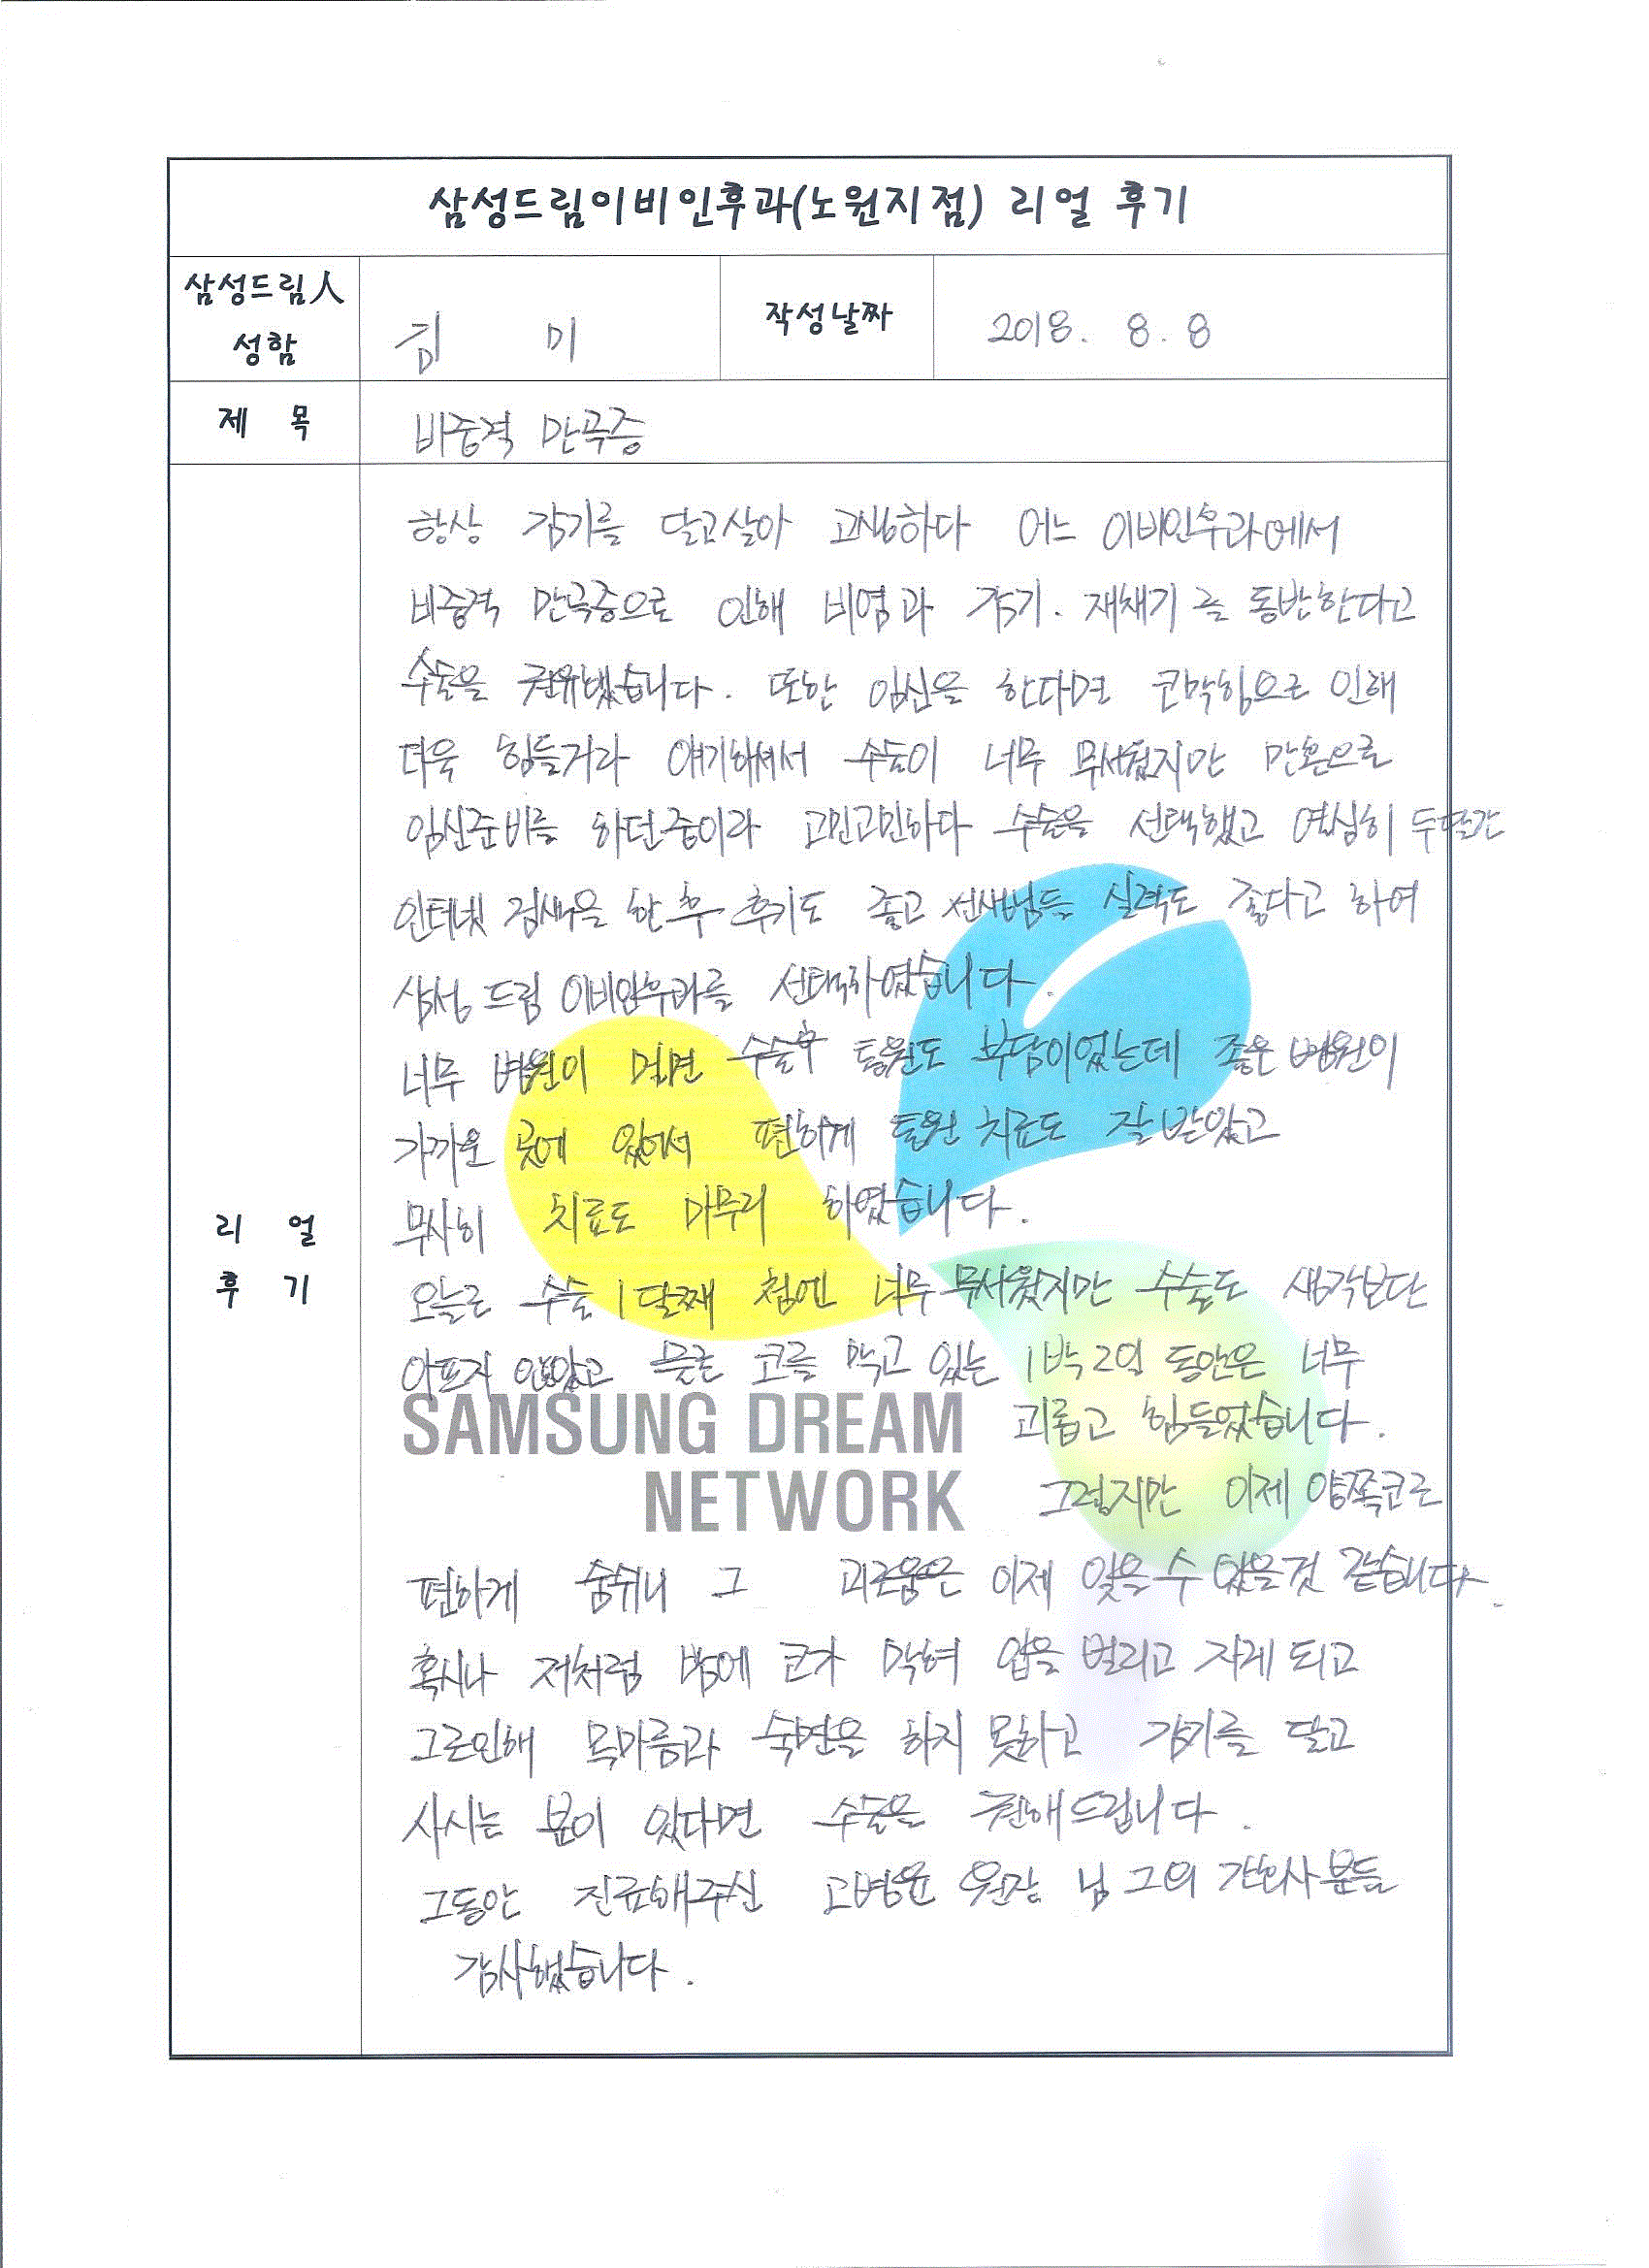 삼성드림이비인후과(노원지점) 리얼 후기
삼성드림人
성함
김 미
작성날짜
2018. 8. 8
제 목
비중격 만곡증
리 얼
후 기
항상 감기를 달고살아 고생하다 어느 이비인후과에서
비중격 만곡증으로 인해 비염과 감기. 재채기를 동반한다고
수술을 권유했습니다. 또한 임신을 한다면 코막힘으로 인해
더욱 힘들거라 얘기하셔서 수술이 너무 무서웠지만 만혼으로
임신준비를 하던중이라 고민고민하다 수술을 선택했고 열심히 두달간
인터넷 검색을 한 후 후기도 좋고 선생님들 실력도 좋다고 하여
삼성 드림 이비인후과를 선택하였습니다.
너무 병원이 멀면 수술후 통원도 부담이었는데 좋은 병원이
가까운 곳에 있어서 편하게 통원 치료도 잘 받았고
무사히 치료도 마무리 하였습니다.
오늘로 수술 1달째 첨엔 너무 무서웠지만 수술도 생각보단
아프지 않았고 코를 막고 있는 1박2일 동안은 너무
괴롭고 힘들었습니다.
SAMSUNG DREAM
NETWORK
그렇지만 이제 양쪽코로
편하게 숨쉬니 그 괴로움은 이제 잊을 수 있을것 같습니다.
혹시나 저처럼 밤에 코가 막혀 입을 벌리고 자게 되고
그로인해 목마름과 숙면을 하지 못하고 감기를 달고
사시는 분이 있다면 수술을 권해드립니다.
그동안 진료해주신 고병윤 원장 님 그외 간호사분들
감사했습니다.